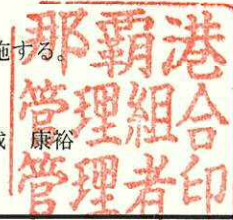 施する。
城 康裕
那覇港
管理組合
管理者印